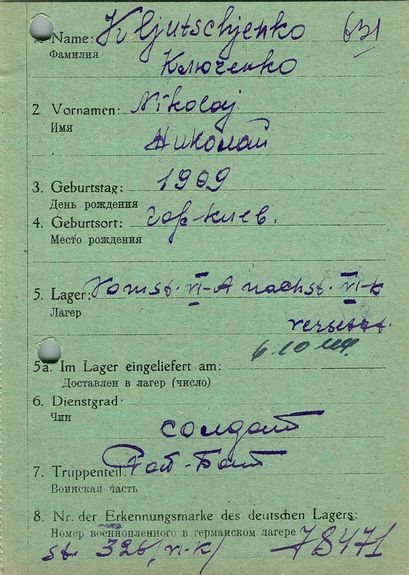 1. Name: Kljutschjenko 631
Фамилия
Ключенко
2 Vornamen: Nikolaj
Имя
Николай
3. Geburtstag: 1909
День рождения
4. Geburtsort: гор. Киев.
Место рождения
5. Lager: Vom st. VI-A nach st. VI-k
Лагер
versetzt.
5a. Im Lager eingeliefert am: 6.10.44.
Доставлен в лагер (число)
6. Dienstgrad:
Чин
солдат
7. Truppenteil: Раб-Бат
Воинская часть
8. Nr. der Erkennungsmarke des deutschen Lagers:
Номер военнопленного в германском лагере 78471
st. 326 (VI-K)